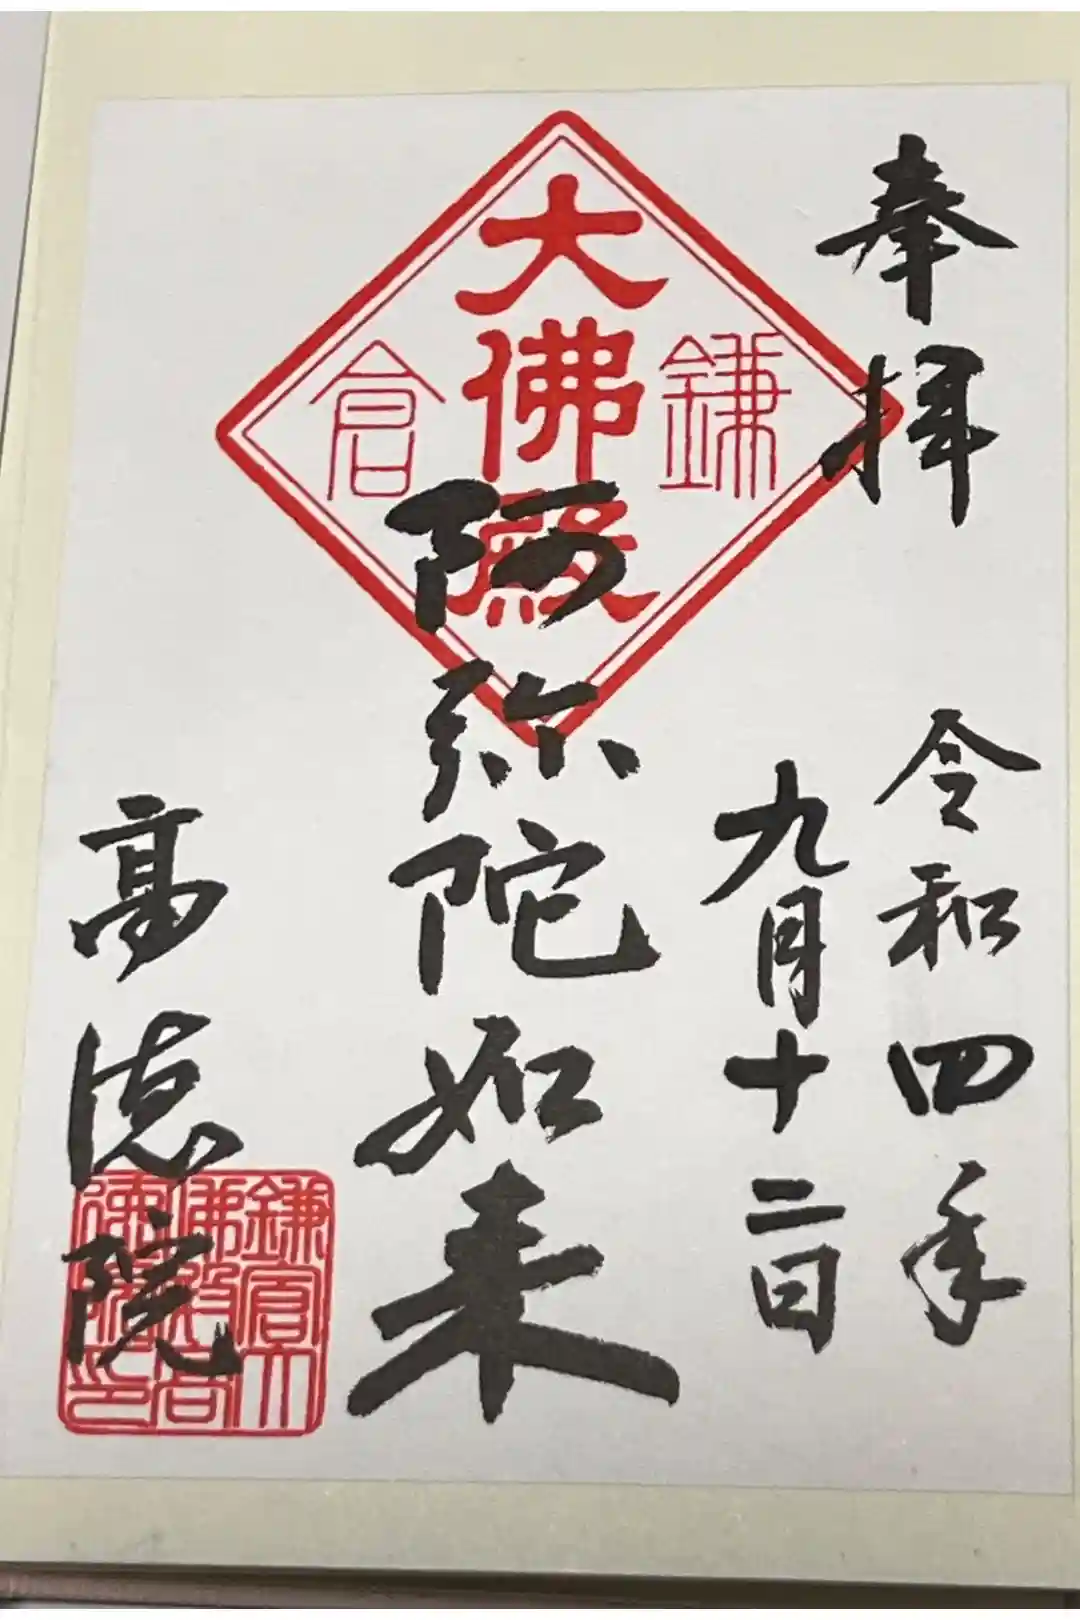 奉拝
令和四年
九月十二日
鎌倉
大佛殿
阿弥陀如来
高徳院
鎌倉大
佛殿高
徳院印